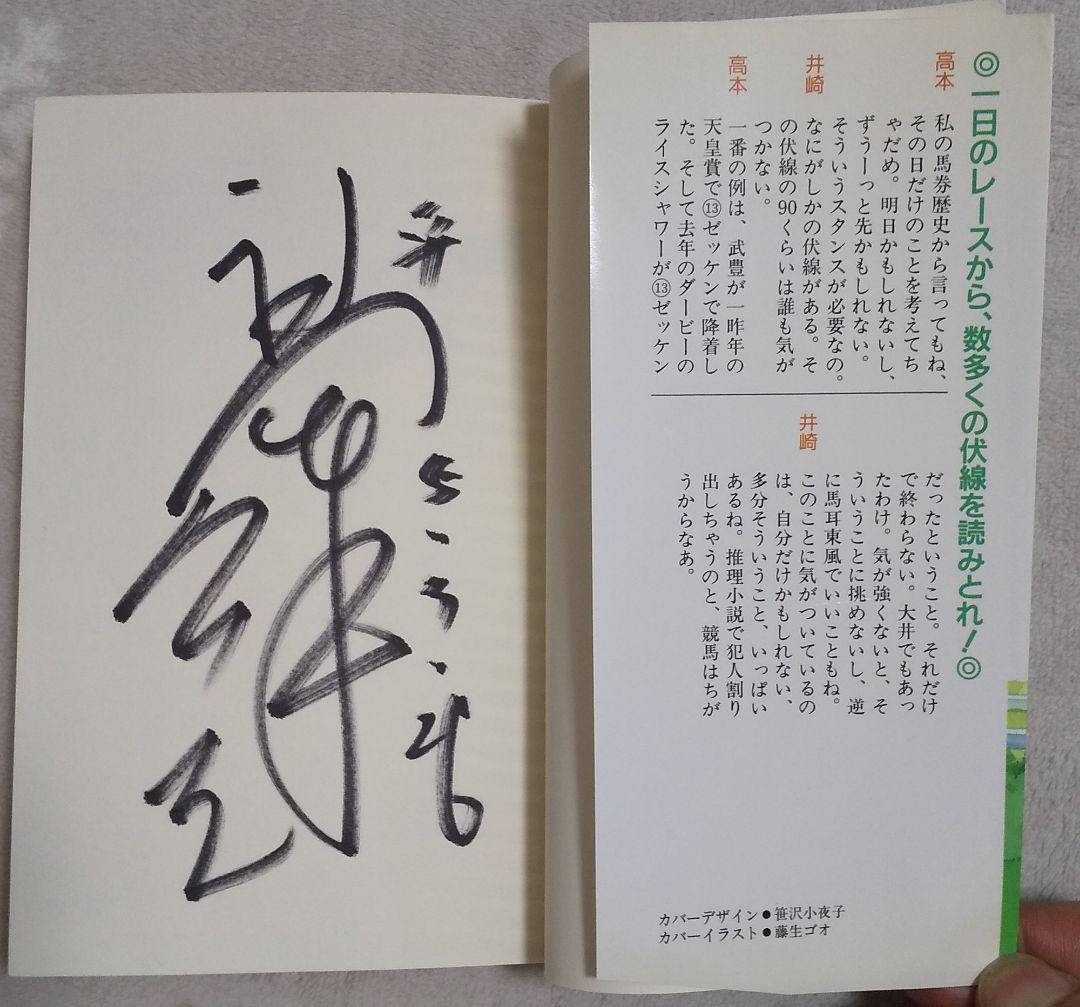 ◎一日のレースから、数多くの伏線を読みとれ！◎
高本
私の馬券歴史から言ってもね、
その日だけのことを考えてち
ゃだめ。明日かもしれないし、
ずうーっと先かもしれない。
そういうスタンスが必要なの。
井崎
なにがしかの伏線がある。そ
の伏線の90くらいは誰も気が
つかない。
高本
一番の例は、武豊が一昨年の
天皇賞で⑬ゼッケンで降着し
た。そして去年のダービーの
ライスシャワーが⑬ゼッケン
だったということ。それだけ
で終わらない。大井でもあっ
たわけ。気が強くないと、そ
ういうことに挑めないし、逆
に馬耳東風でいいこともね。
井崎
このことに気がついているの
は、自分だけかもしれない、
多分そういうこと、いっぱい
あるね。推理小説で犯人割り
出しちゃうのと、競馬はちが
うからなあ。
カバーデザイン●笹沢小夜子
カバーイラスト●藤生ゴオ
平5.3.26